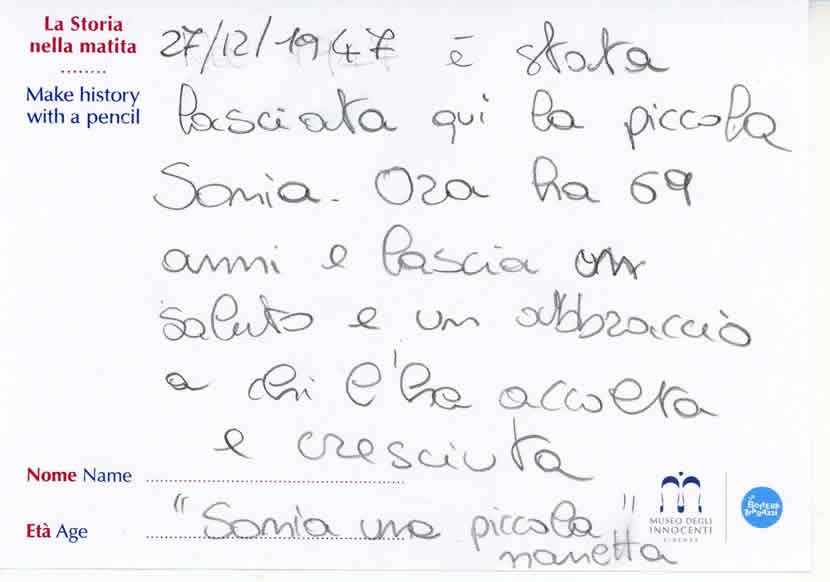 La Storia
nella matita
Make history
with a pencil
27/12/1947 è stata
lasciata qui la piccola
Sonia. Ora ha 69
anni e lascia un
saluto e un abbraccio
a chi l'ha accolta
e cresciuta
Nome Name
Età Age
"Sonia una piccola"
nanetta
MUSEO DEGLI
INNOCENTI
FIRENZE
la
BOTTEGA
DEI RAGAZZI